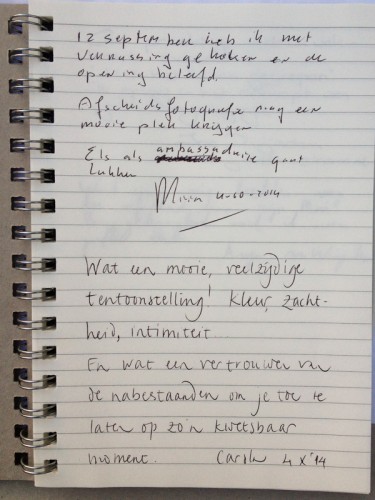 12 september heb ik met
verrassing gekeken en de
opening beleefd.
Afscheidsfotografie mag een
mooie plek krijgen
Els als ambassadrice gaat
lukken
4-10-2014
Wat een mooie, veelzijdige
tentoonstelling! Kleur, zacht-
heid, intimiteit...
En wat een vertrouwen van
de nabestaanden om je toe te
laten op zo'n kwetsbaar
moment. Carla 4 X '14